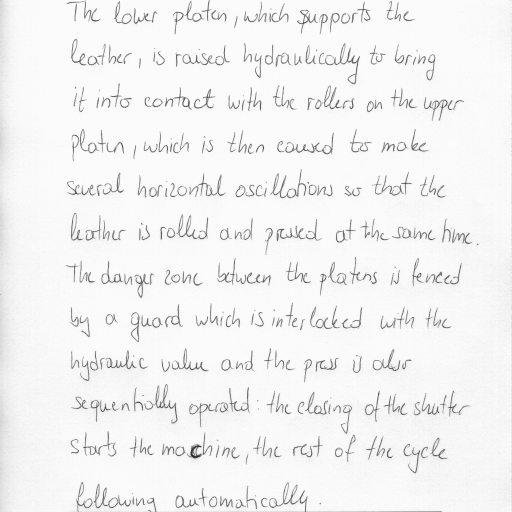 The lower platen, which supports the
leather, is raised hydraulically to bring
it into contact with the rollers on the upper
platen, which is then caused to make
several horizontal oscillations so that the
leather is rolled and pressed at the same time.
The danger zone between the platens is fenced
by a guard which is interlocked with the
hydraulic valve and the press is also
sequentially operated: the closing of the shutter
starts the machine, the rest of the cycle
following automatically.